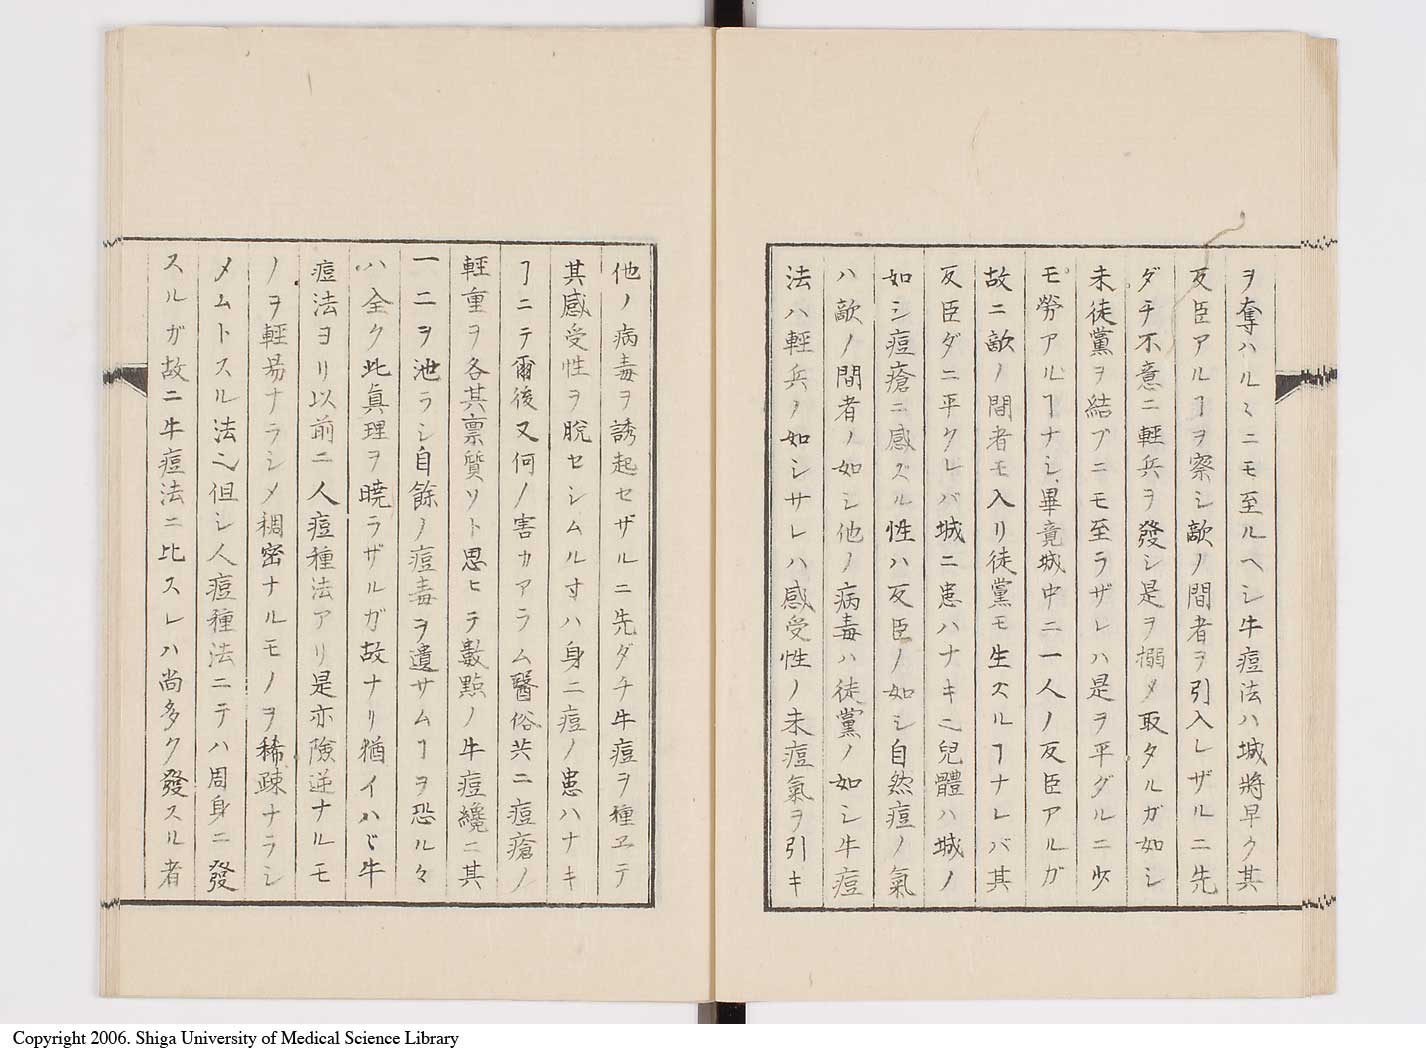 ヲ奪ハルヽニモ至ルヘシ牛痘法ハ城將早ク其
反臣アルヿヲ察シ敵ノ間者ヲ引入レザルニ先
ダチ不意ニ輕兵ヲ發シ是ヲ搦メ取タルガ如シ
未徒黨ヲ結ブニモ至ラザレハ是ヲ平グルニ少
モ勞アルヿナシ畢竟城中ニ一人ノ反臣アルガ
故ニ敵ノ間者モ入リ徒黨モ生ズルヿナレバ其
反臣ダニ平クレバ城ニ患ハナキ也兒體ハ城ノ
如シ痘瘡ニ感ズル性ハ反臣ノ如シ自然痘ノ氣
ハ敵ノ間者ノ如シ他ノ病毒ハ徒黨ノ如シ牛痘
法ハ輕兵ノ如シサレハ感受性ノ未痘氣ヲ引キ
他ノ病毒ヲ誘起セザルニ先ダチ牛痘ヲ種ヱテ
其感受性ヲ脱セシムル寸ハ身ニ痘ノ患ハナキ
ヿニテ爾後又何ノ害カアラム醫俗共ニ痘瘡ノ
輕重ヲ各其禀質ソト思ヒテ數點ノ牛痘纔ニ其
一二ヲ泄ラシ自餘ノ痘毒ヲ遺サムヿヲ恐ル々
ハ全ク此眞理ヲ曉ラザルガ故ナリ猶イハヾ牛
痘法ヨリ以前ニ人痘種法アリ是亦險逆ナルモ
ノヲ輕易ナラシメ稠密ナルモノヲ稀疎ナラシ
メムトスル法也但シ人痘種法ニテハ周身ニ發
スルガ故ニ牛痘法ニ比スレハ尚多ク發スル者
Copyright 2006. Shiga University of Medical Science Library